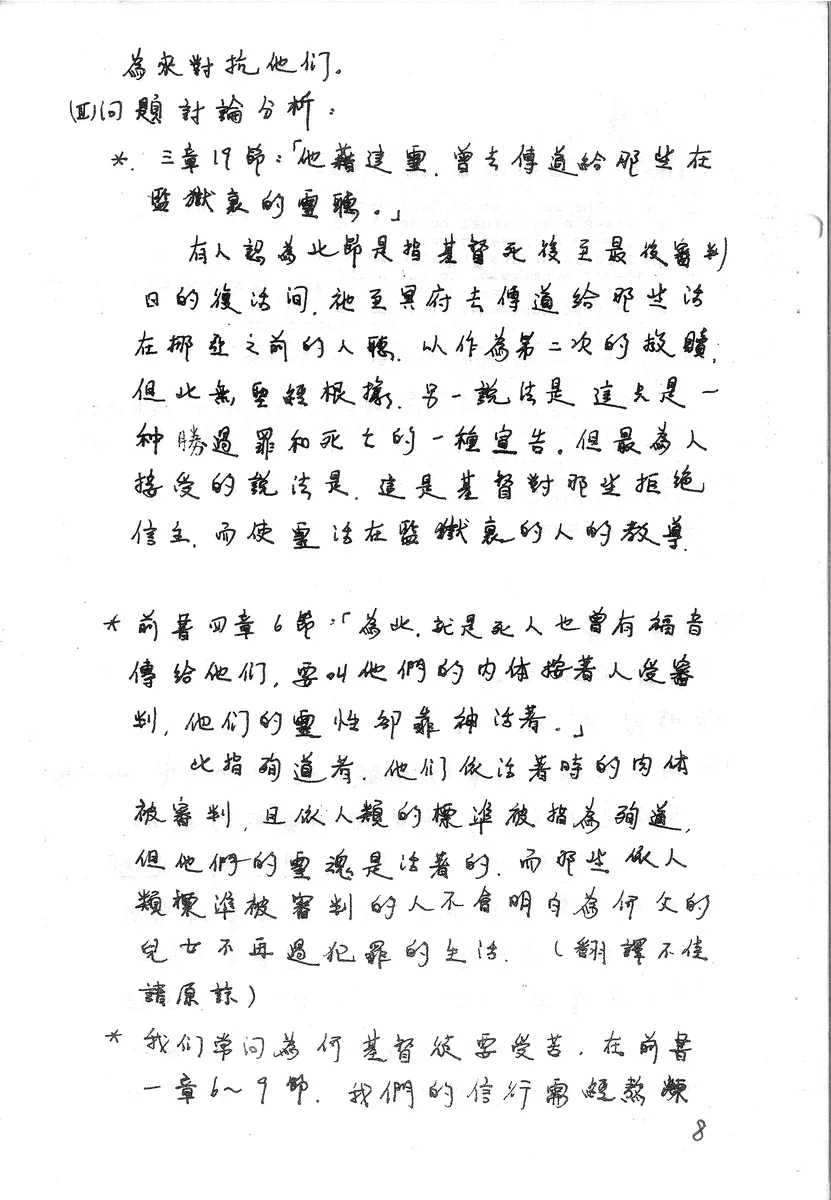 為來對抗他们。
(Ⅲ)问題討論分析：
*. 三章19節：「他藉這靈，曾去傳道給那些在
監獄裏的靈聽。」
有人認為此節是指基督死後至最後審判
日的復活间，祂至冥府去傳道給那些活
在挪亞之前的人聽，以作為第二次的救贖，
但此無聖經根據，另一說法是這只是一
种勝過罪和死亡的一種宣告。但最為人
接受的說法是，這是基督對那些拒绝
信主，而使靈活在監獄裏的人的教導，
* 前書四章6節：「為此，就是死人也曾有福音
傳給他们，要叫他們的肉体按著人受審
判，他们的靈性卻靠神活著。」
此指殉道者，他们依活著時的肉体
被審判，且依人類的標準被指為殉道，
但他們的靈魂是活著的，而那些依人
類標準被審判的人不會明白為何父的
兒女不再過犯罪的生活．（翻譯不佳
請原諒）
* 我们常问為何基督徒要受苦．在前書
一章6～9節，我們的信行需經熬煉
8